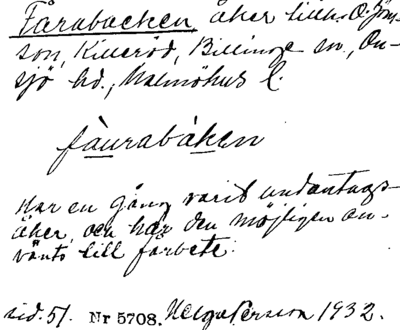 Fårabacken, åker tillh. O. Jöns-
son, Killeröd, Billinge sn, On-
sjö hd., Malmöhus l.
fåurabákən
Har en gång varit undantags-
åker, och har den möjligen an-
vänts till fårbete.
sid. 51. Nr 5708. Helge Persson 1932.